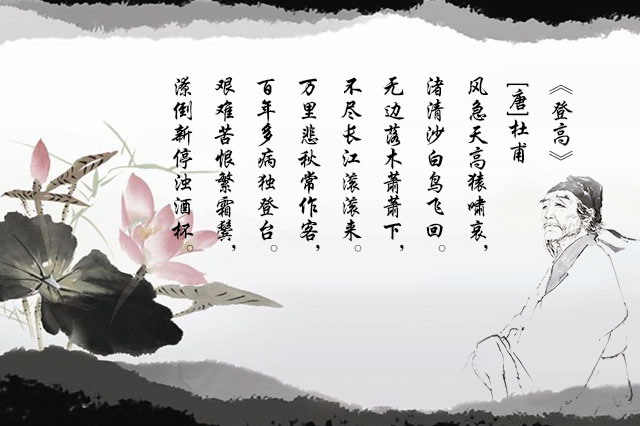 《登高》
[唐]杜甫
风急天高猿啸哀，
渚清沙白鸟飞回。
无边落木萧萧下，
不尽长江滚滚来。
万里悲秋常作客，
百年多病独登台。
艰难苦恨繁霜鬓，
潦倒新停浊酒杯。